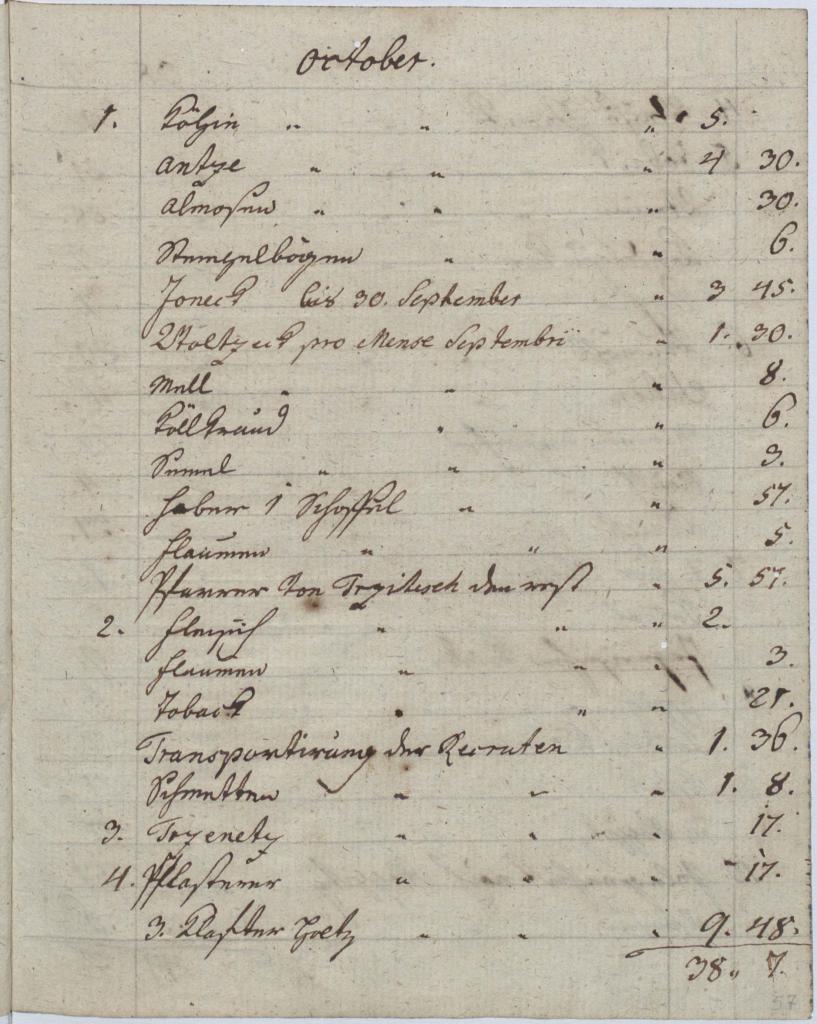 October.
1. Köchin " " " 5.
antze " " " 4 30.
Almosen " " " 30.
Stempelbögen " " 6.
Joneck bis 30. September " 3 45.
pro Mense Septembri " 1. 30.
Mell " " " 8.
Köllkraud " " 6.
Semel " " " 3.
Haber 1 Schoffel " " 57.
Flaumen " " " 5.
Pfarrer von den rest " 5. 57.
2. Fleisch " " " 2.
Flaumen " " " 3.
Toback " " " 21.
Transportirung der Recruten " 1. 36.
Schmetten " " " 1. 8.
3. " " " 17.
4. Pflasterer " " " 17.
3. Klafter Holtz " " " 9. 48.
38. 7.
57